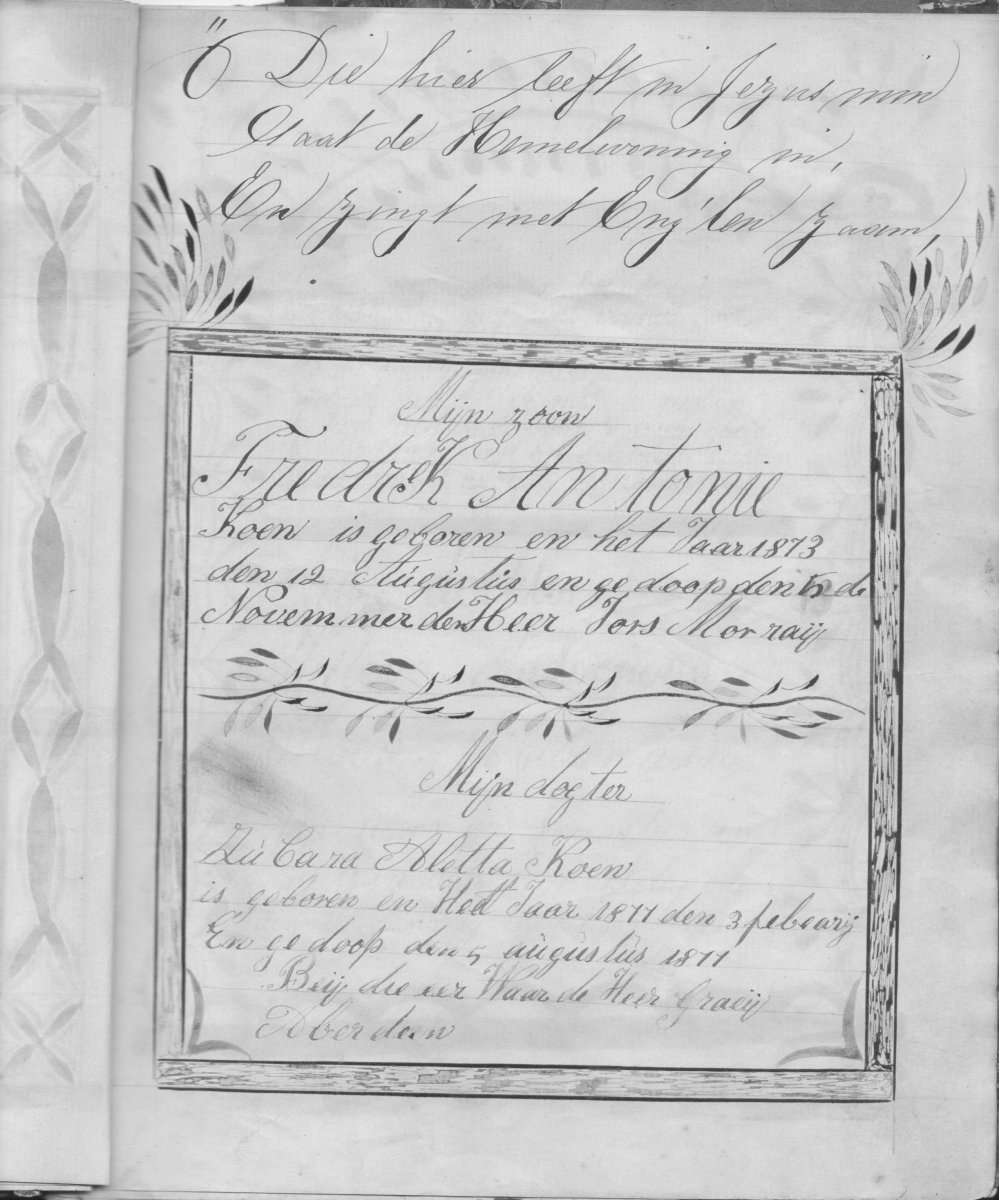 Ö Die hier leeft in Jezus min
Gaat de Hemelwoning in,
En zingt met Eng'len zaam,
Mijn zoon
Fredrek Antonie
Koen is geboren en het Jaar 1873
den 12 Augustus en ge doop den de
Novemmer den Heer Jors Morraij
Mijn dogter
Aletta Koen
is geboren en Hett Jaar 1877 den 3 febearij
En ge doop den 5 augustus 1877
Beij die eer Waar de Heer Graeij
Aberdeen